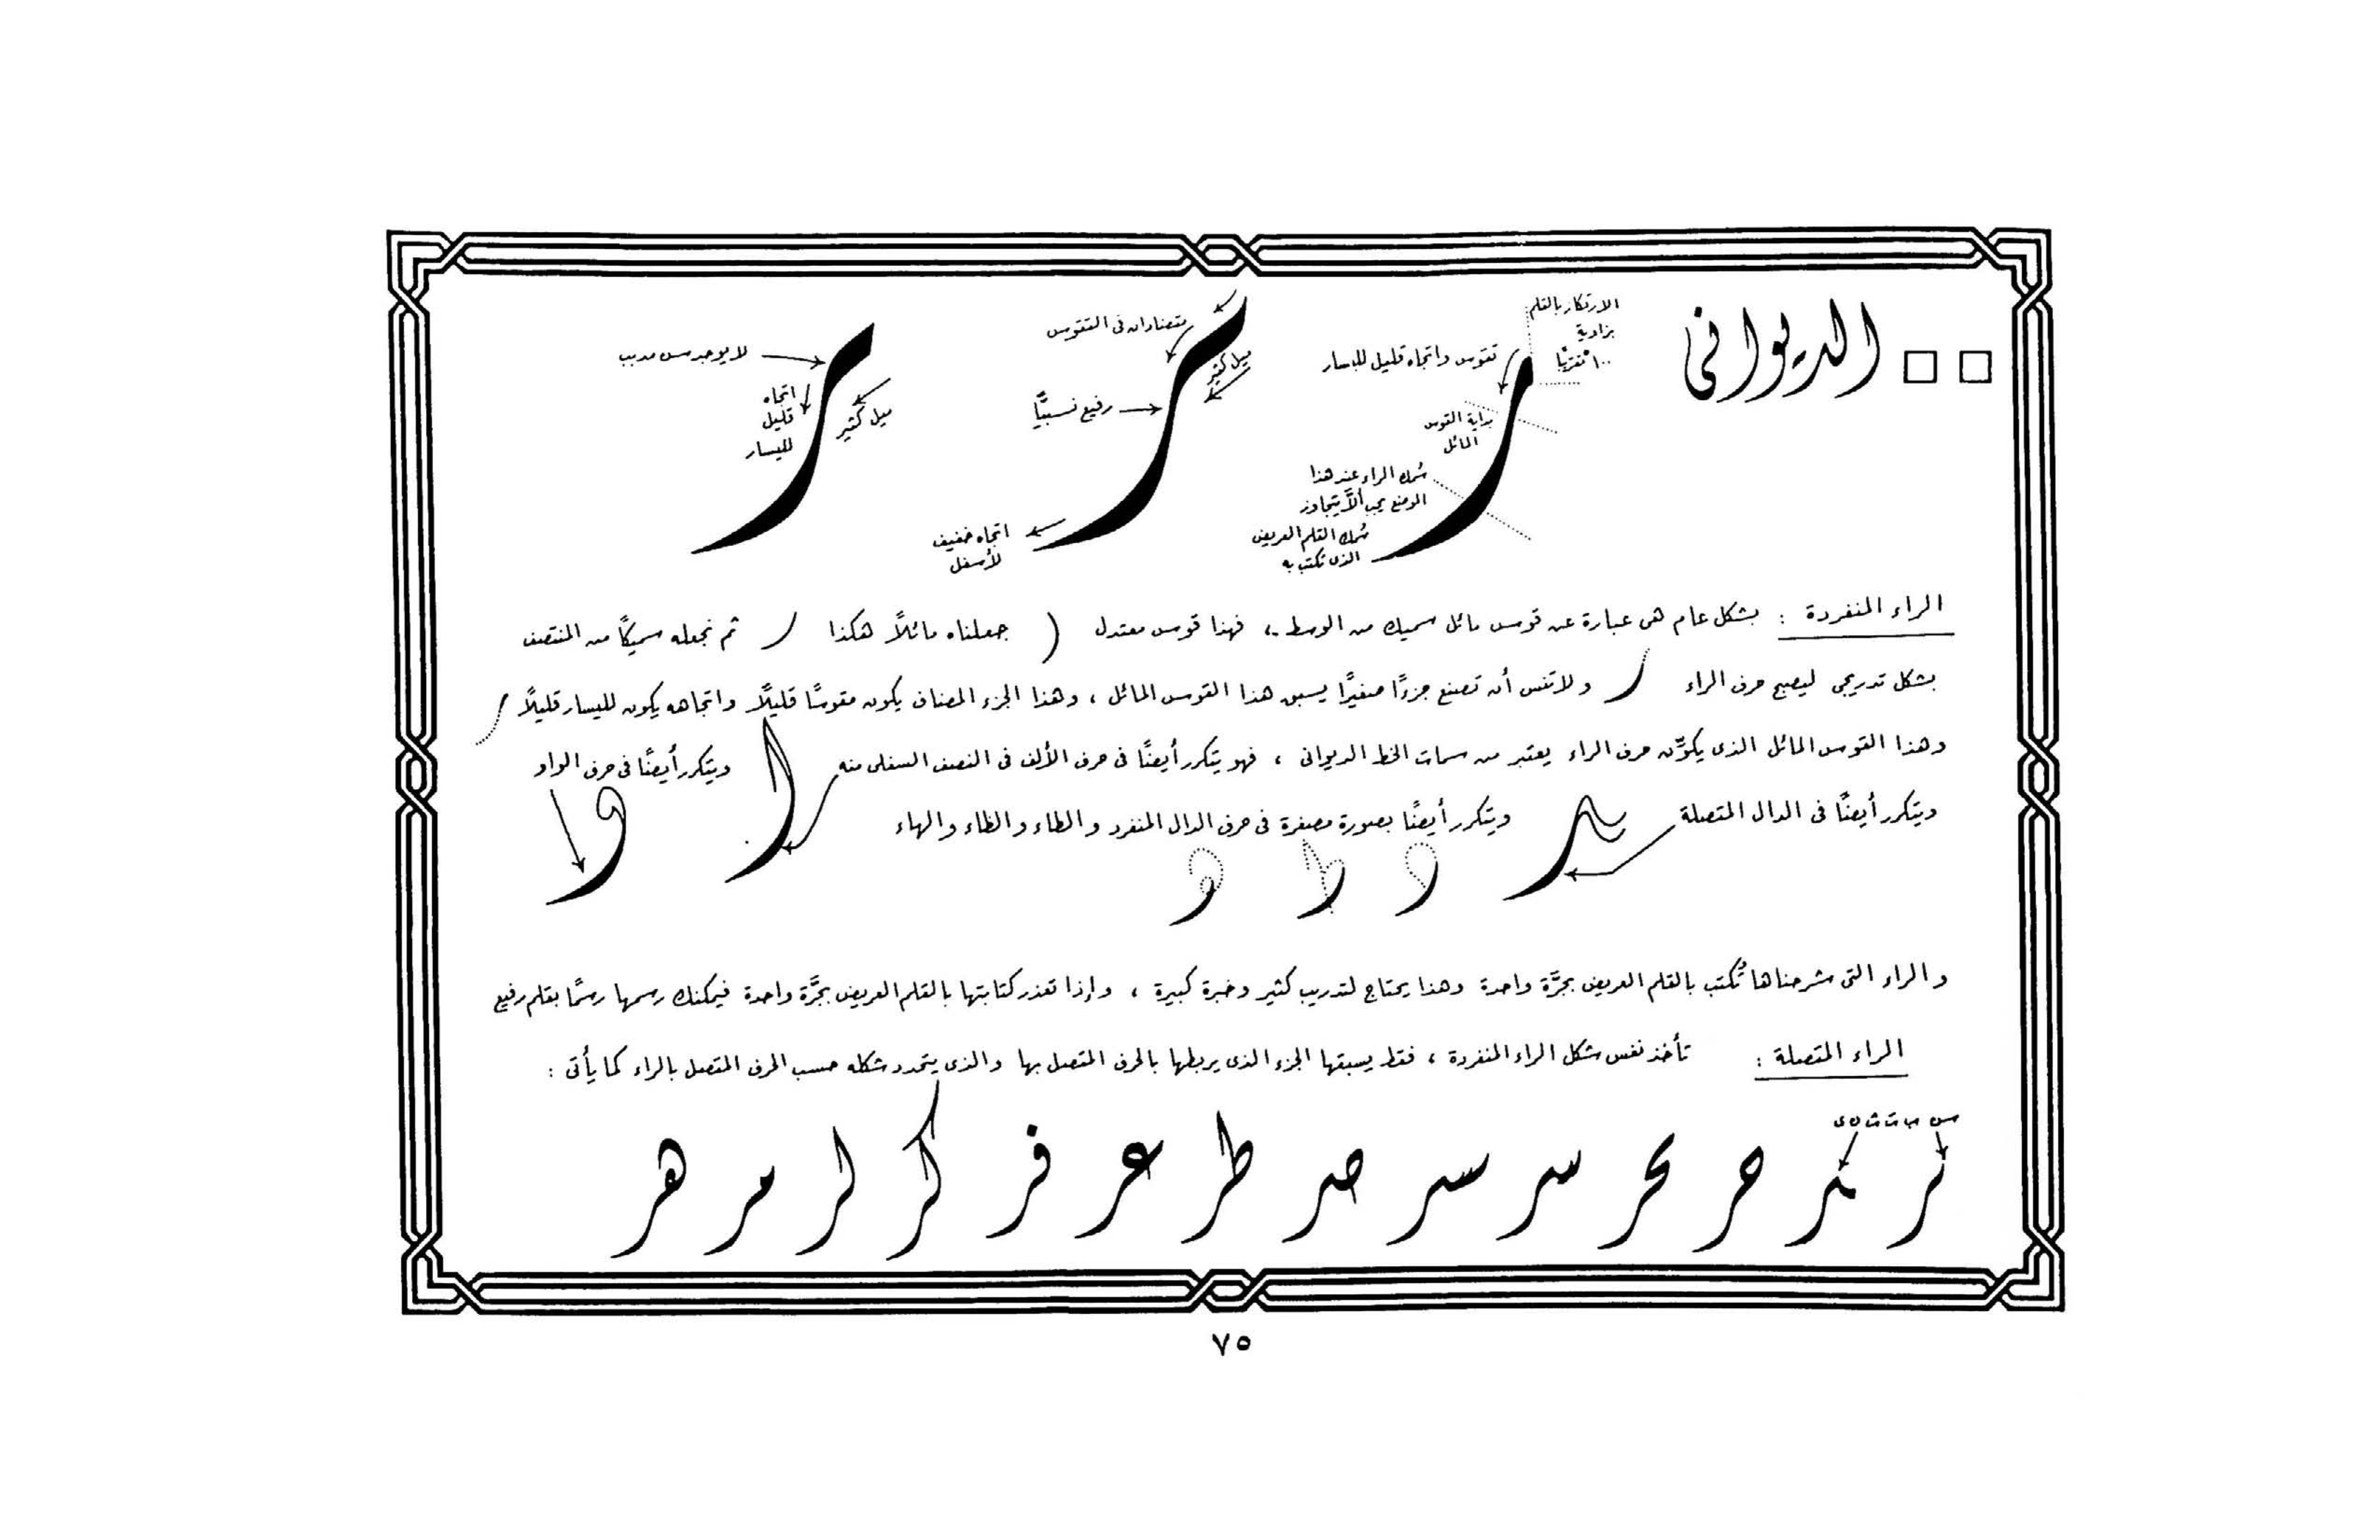 الديوانى
الارتكاز بالقلم
بزاوية
١٠٠° تقريبًا
تقوس واتجاه قليل لليسار
بداية القوس
المائل
سُمك الراء عند هذا
الموضع يجب ألاَّ يتجاوز
سُمك القلم العريض
الذى تكتب به
متضادان فى التقوس
ميل كثير
رفيع نسبيًّا
اتجاه خفيف
لأسفل
لا يوجد سن مدبب
اتجاه
قليل
لليسار
ميل كثير
الراء المنفردة : بشكل عام هى عبارة عن قوس مائل سميك من الوسط ، فهذا قوس معتدل ( جعلناه مائلاً هكذا ر ثم نجعله سميكًا من المنتصف
بشكل تدريجى ليصبح حرف الراء ر ولا تنس أن تصنع جزءًا صغيرًا يسبق هذا القوس المائل ، وهذا الجزء المضاف يكون مقوسًا قليلًا واتجاهه يكون لليسار قليلًا
وهذا القوس المائل الذى يكوّن حرف الراء يعتبر من سمات الخط الديوانى ، فهو يتكرر أيضًا فى حرف الألف فى النصف السفلى منه ا ويتكرر أيضًا فى حرف الواو و
ويتكرر أيضًا فى الدال المتصلة ويتكرر أيضًا بصورة مصغرة فى حرف الدال المنفرد والطاء والظاء والهاء
والراء التى شرحناها تُكتب بالقلم العريض بجرَّة واحدة وهذا يحتاج لتدريب كثير وخبرة كبيرة ، وإذا تعذر كتابتها بالقلم العريض بجرَّة واحدة فيمكنك رسمها رسمًا بقلم رفيع
الراء المتصلة : تأخذ نفس شكل الراء المنفردة ، فقط يسبقها الجزء الذى يربطها بالحرف المتصل بها والذى يتحدد شكله حسب الحرف المتصل بالراء كما يأتى :
حر سر سر صر طر عر فر كر لر مر هر
٧٥